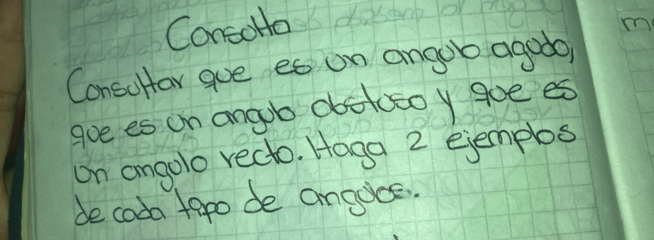 Consulta
Consultar que es un angulo agudo,
que es un angulo obstuso y que es
un angulo recto. Haga 2 ejemplos
de cada tipo de angulos.